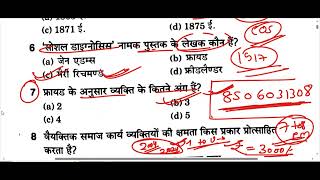 (c) 1871 ई. (d) 1875 ई.
6 'सोशल डाइग्नोसिस' नामक पुस्तक के लेखक कौन हैं?
(a) जेन एडम्स (b) फ्रायड
(c) मैरी रिचमण्ड (d) फ्रीडलैण्डर
1917
7 फ्रायड के अनुसार व्यक्ति के कितने अंग हैं?
(a) 2 (b) 3
(c) 4 (d) 5
8506031308
8 वैयक्तिक समाज कार्य व्यक्तियों की क्षमता किस प्रकार प्रोत्साहित करता है?
3000/-